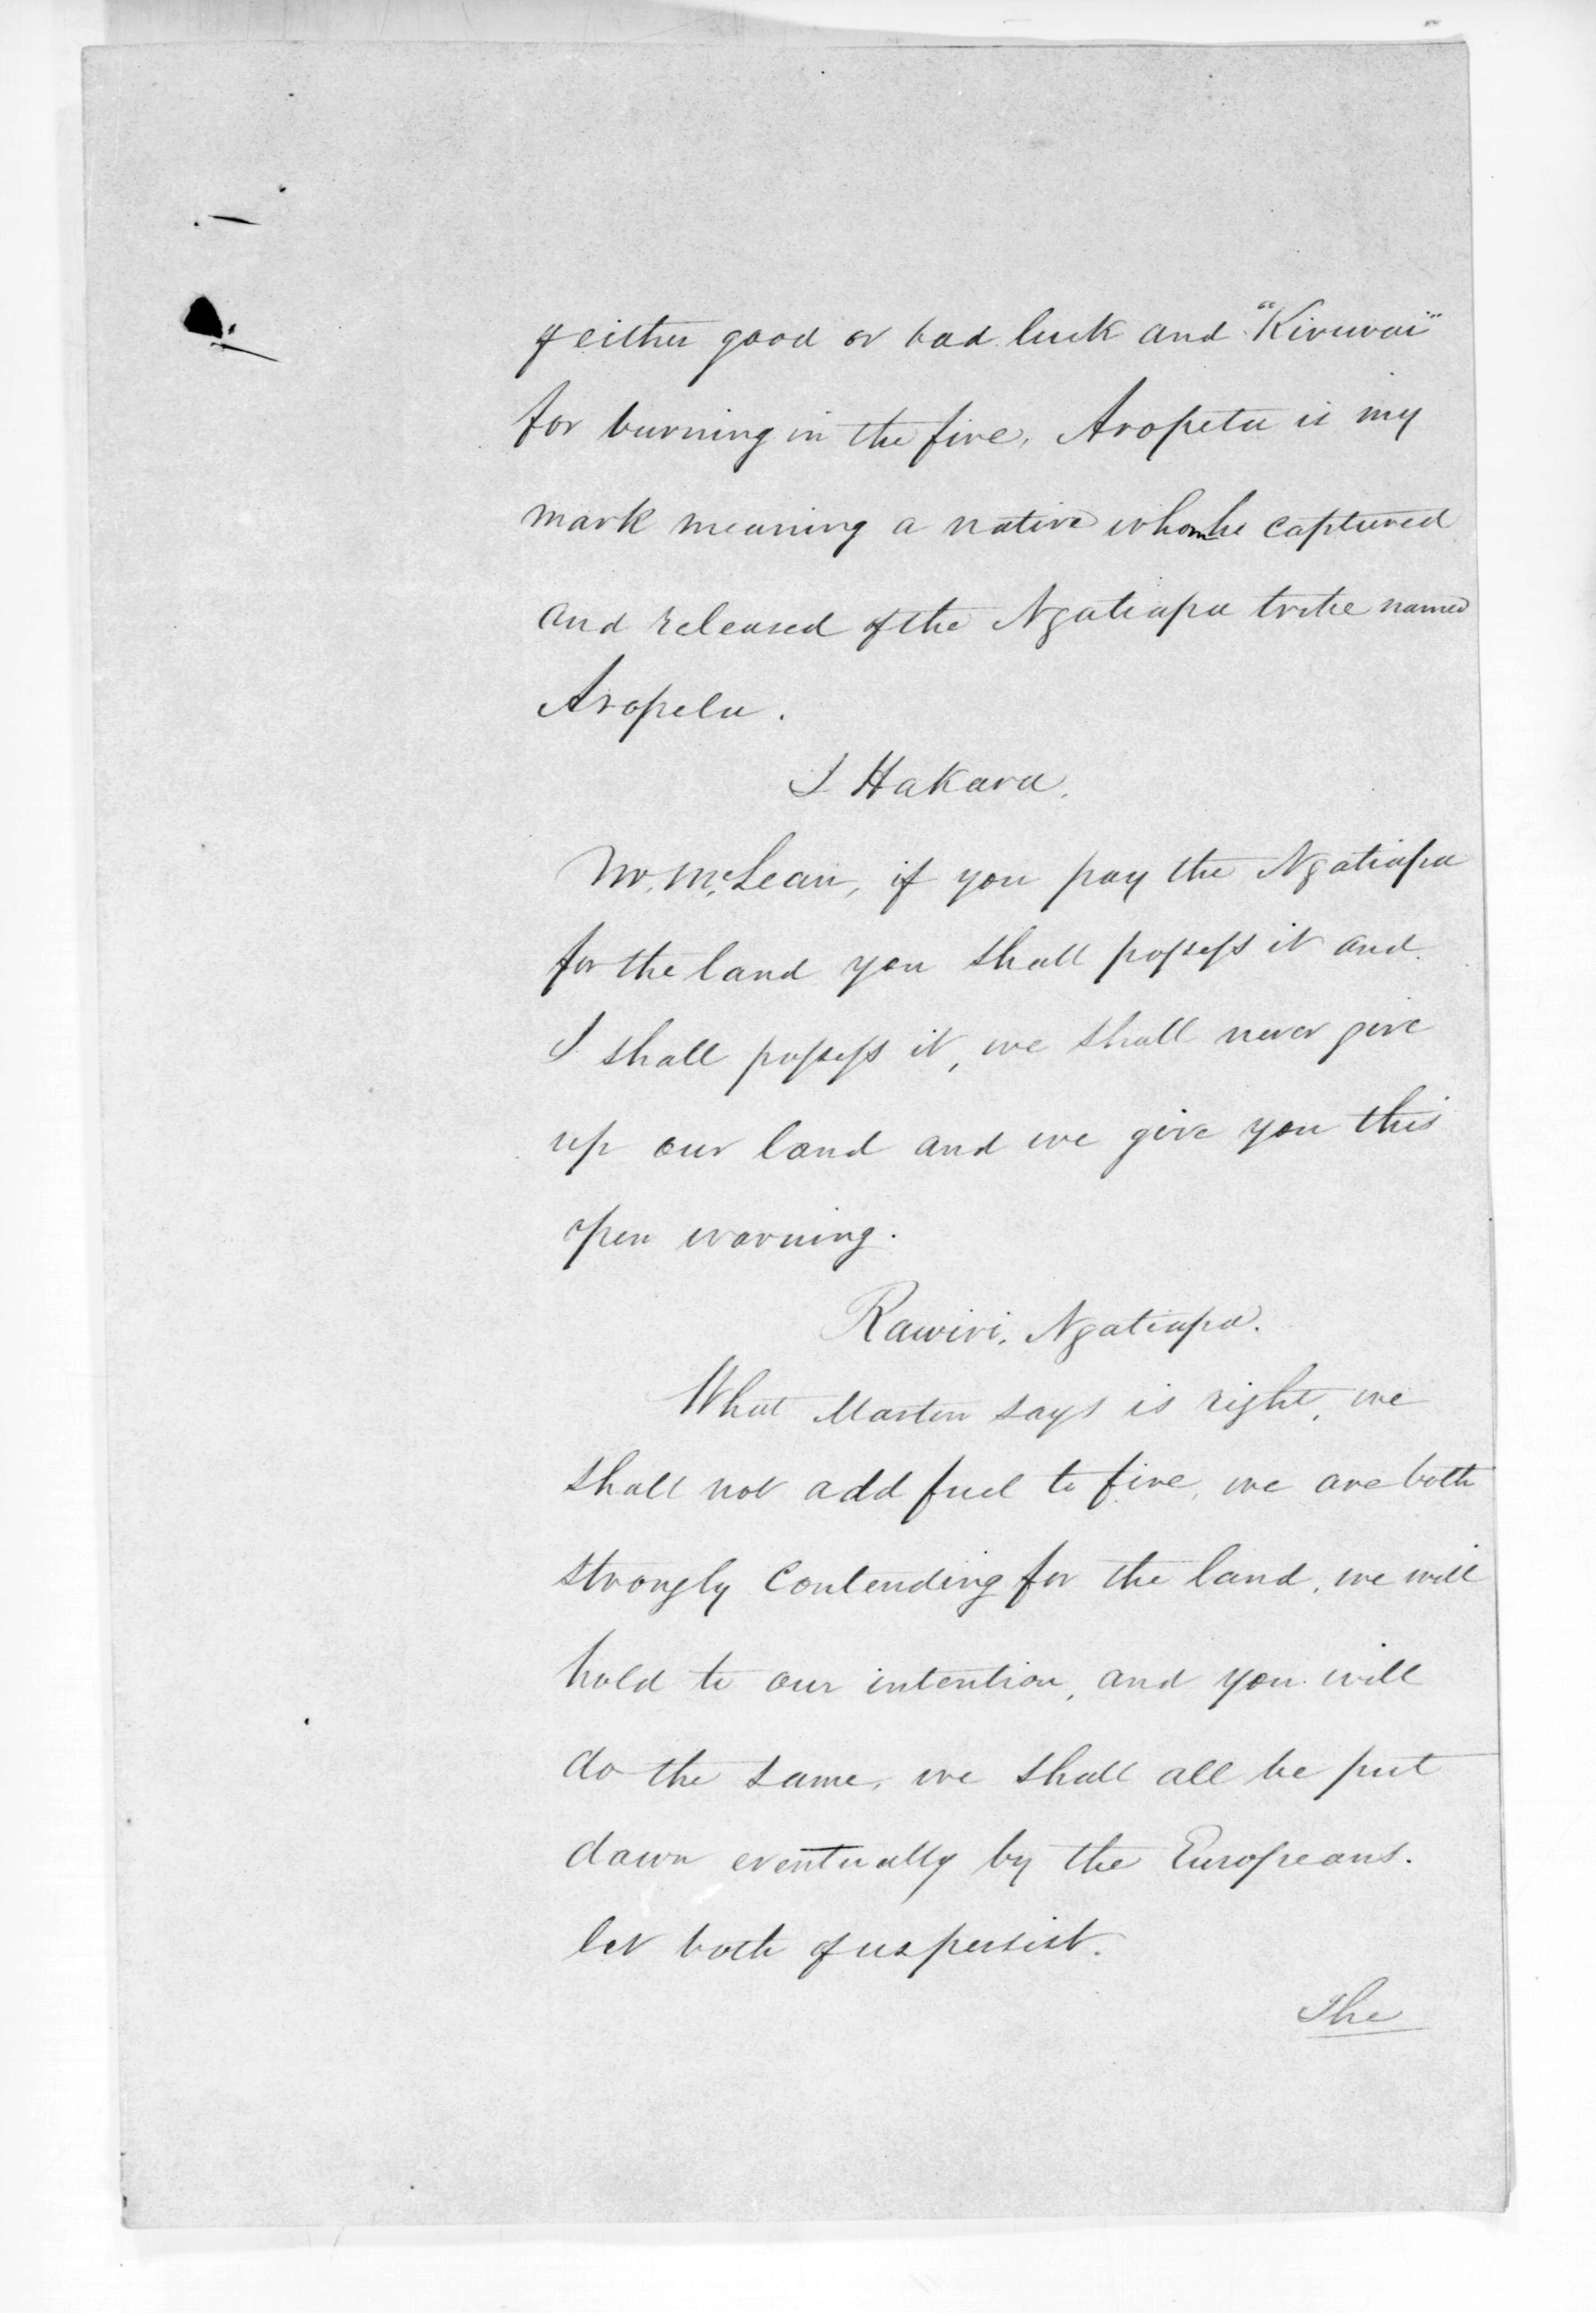 of either good or bad luck and "Kiruwai"
for burning in the fire, Aropeta is my
mark meaning a native whom he captured
and released of the Ngatiapa tribe named
Aropeta.
I Hakara.
Mr. McLean, if you pay the Ngatiapa
for the land you shall possess it and
I shall possess it, we shall never give
up our land and we give you this
open warning.
Rawiri, Ngatiapa.
What Martin says is right, we
shall not add fuel to fire, we are both
strongly contending for the land, we will
hold to our intention, and you will
do the same, we shall all be put
down eventually by the Europeans.
let both of us persist.
The